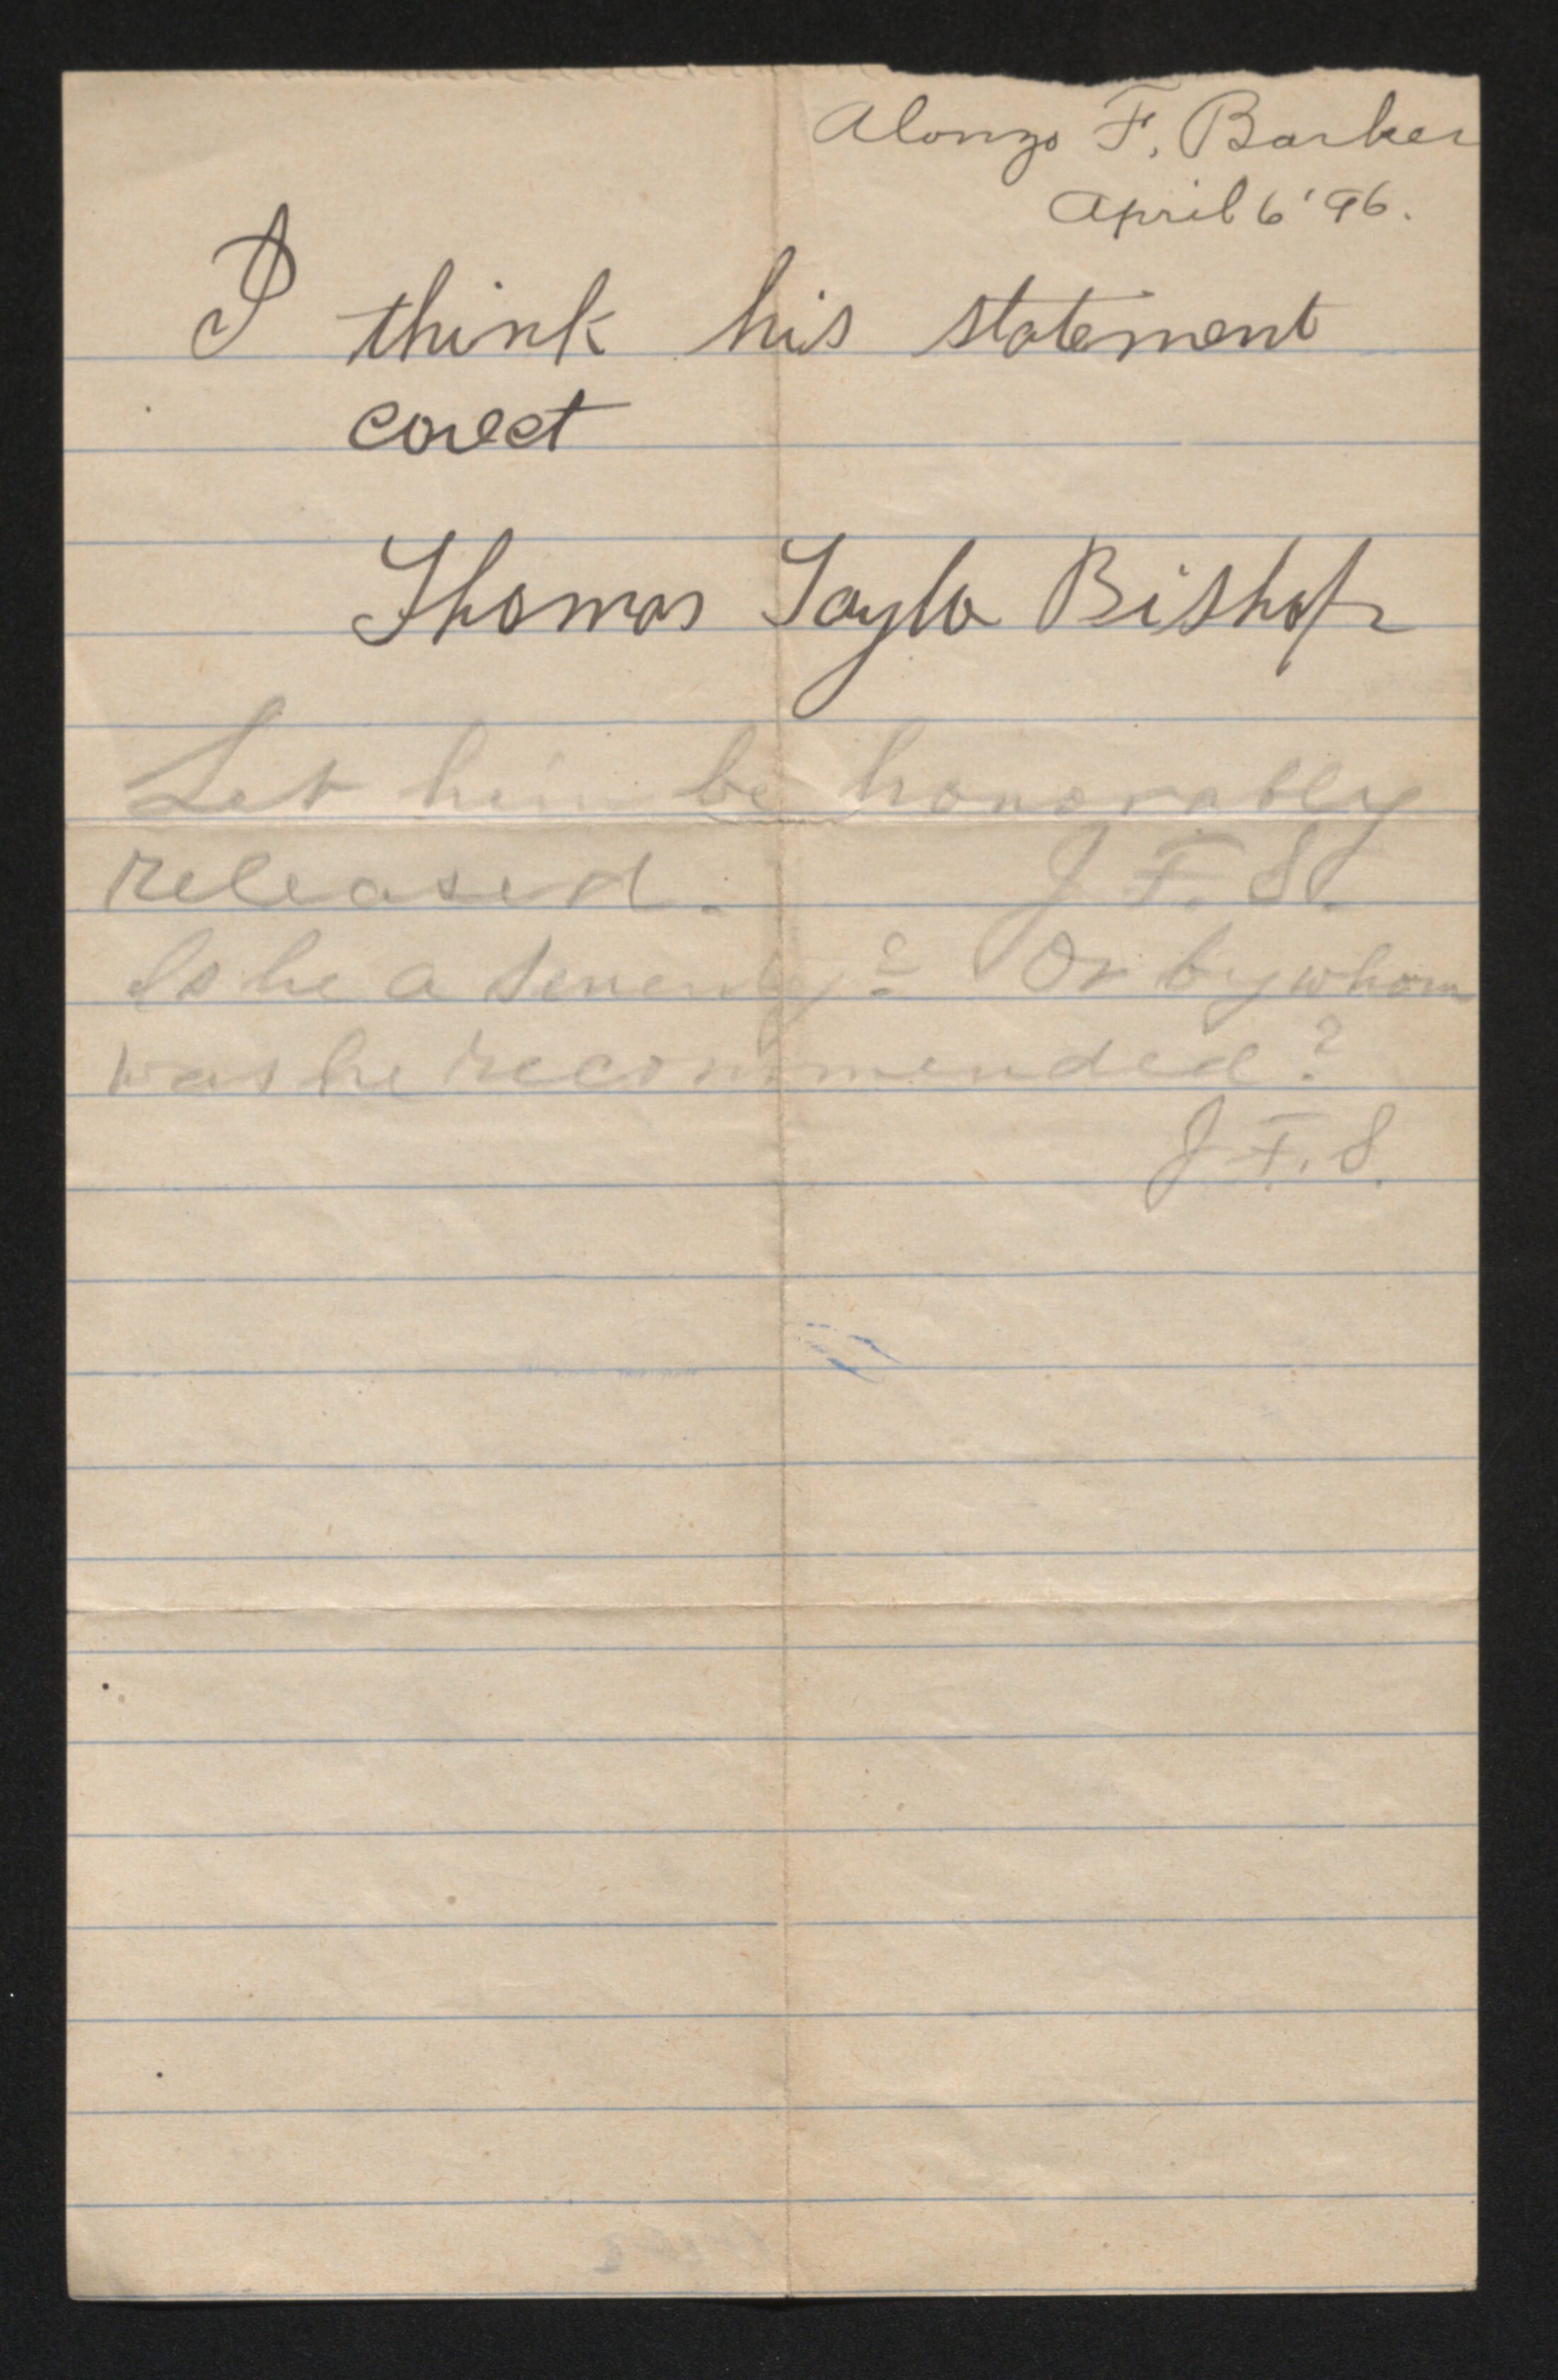 Alonzo F. Barker
April 6 '96.
I think his statement
corect
Thomas Taylor Bishop
Let him be honorably
released. J. F. S.
Is he a seventy? Or by whom
was he recommended?
J. F. S.